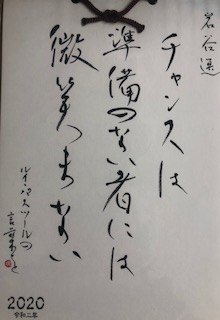 岩谷選
チャンスは
準備のない者には
微笑まない
ルイ・パスツールの
言葉より
2020
令和二年